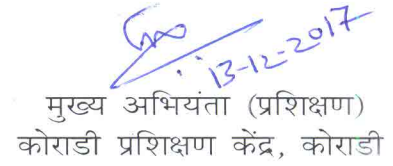 13-12-2017
मुख्य अभियंता (प्रशिक्षण)
कोराडी प्रशिक्षण केंद्र, कोराडी